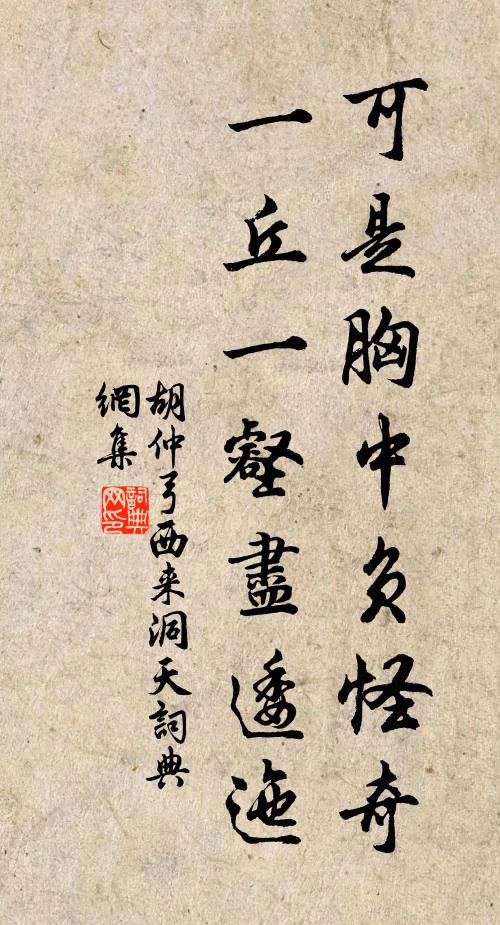 可是胸中負怪奇
一丘一壑盡逶迤
胡仲弓西来洞天詞典
網集
詞典
网印